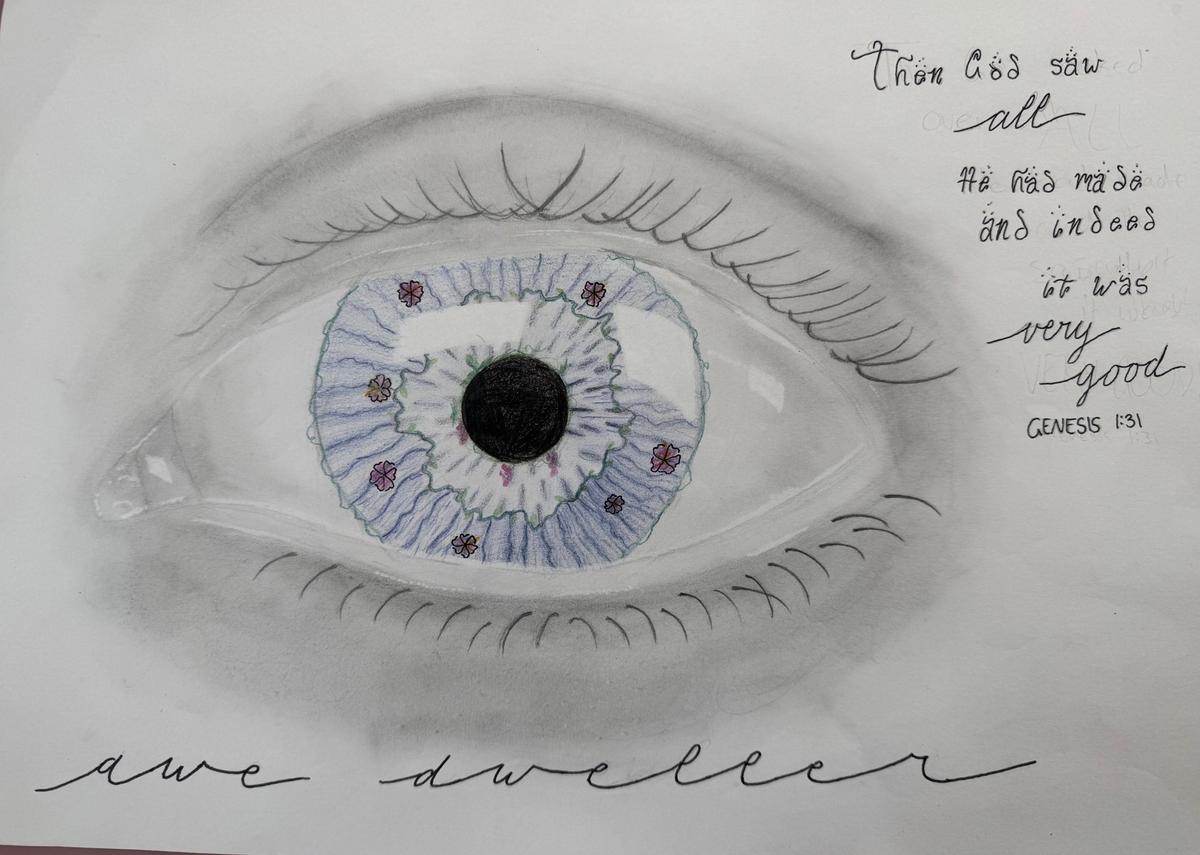 Then God saw
all
He has made
and indeed
it was
very
good
GENESIS 1:31
awe dweller